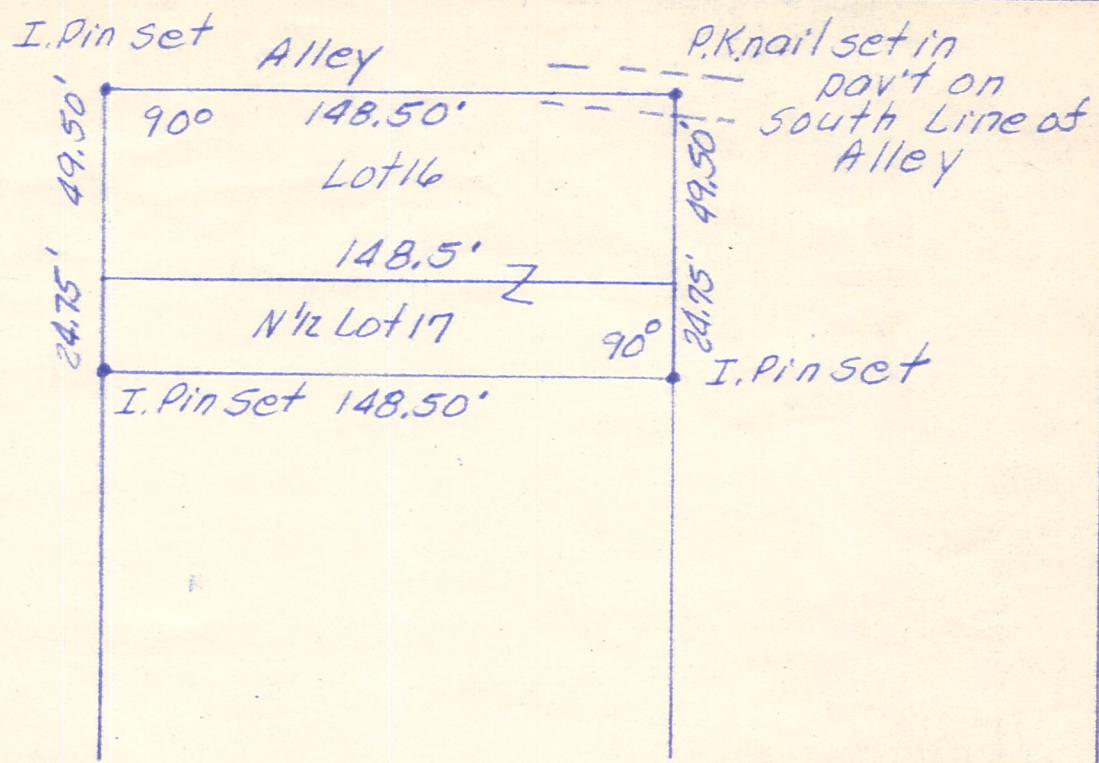 I. Pin Set
Alley
P.K. nail set in
pav't on
South Line of
Alley
49.50'
90°
148.50'
49.50'
Lot 16
148.5'
24.75'
24.75'
N 1/2 Lot 17
90°
I. Pin Set
I. Pin Set 148.50'